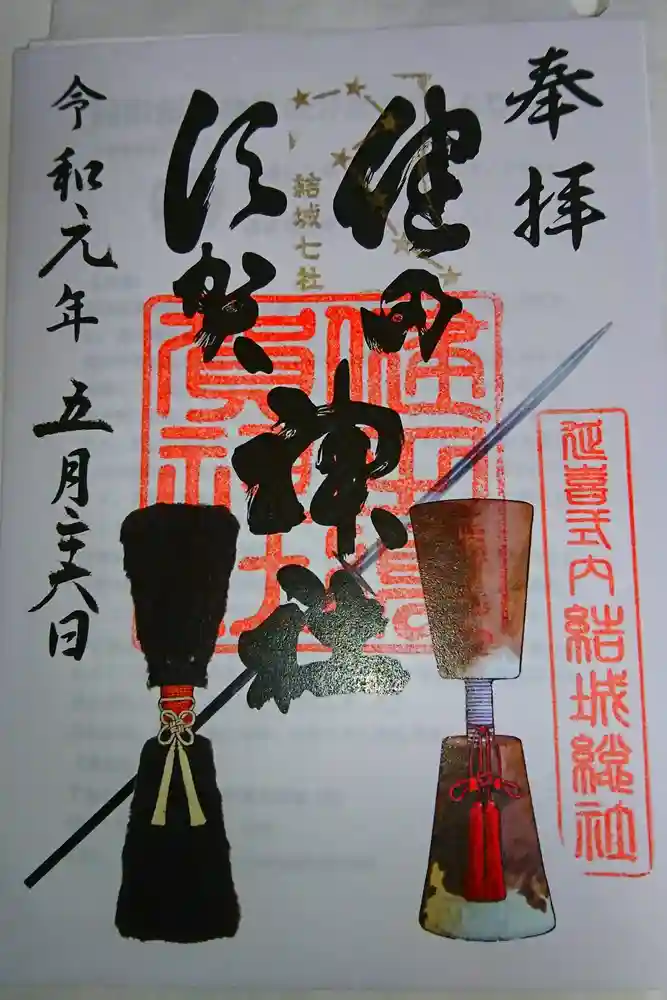 奉拝
延喜式内結城総社
健田
須賀
神社
結城七社
健田須
賀神社
令和元年 五月二十六日